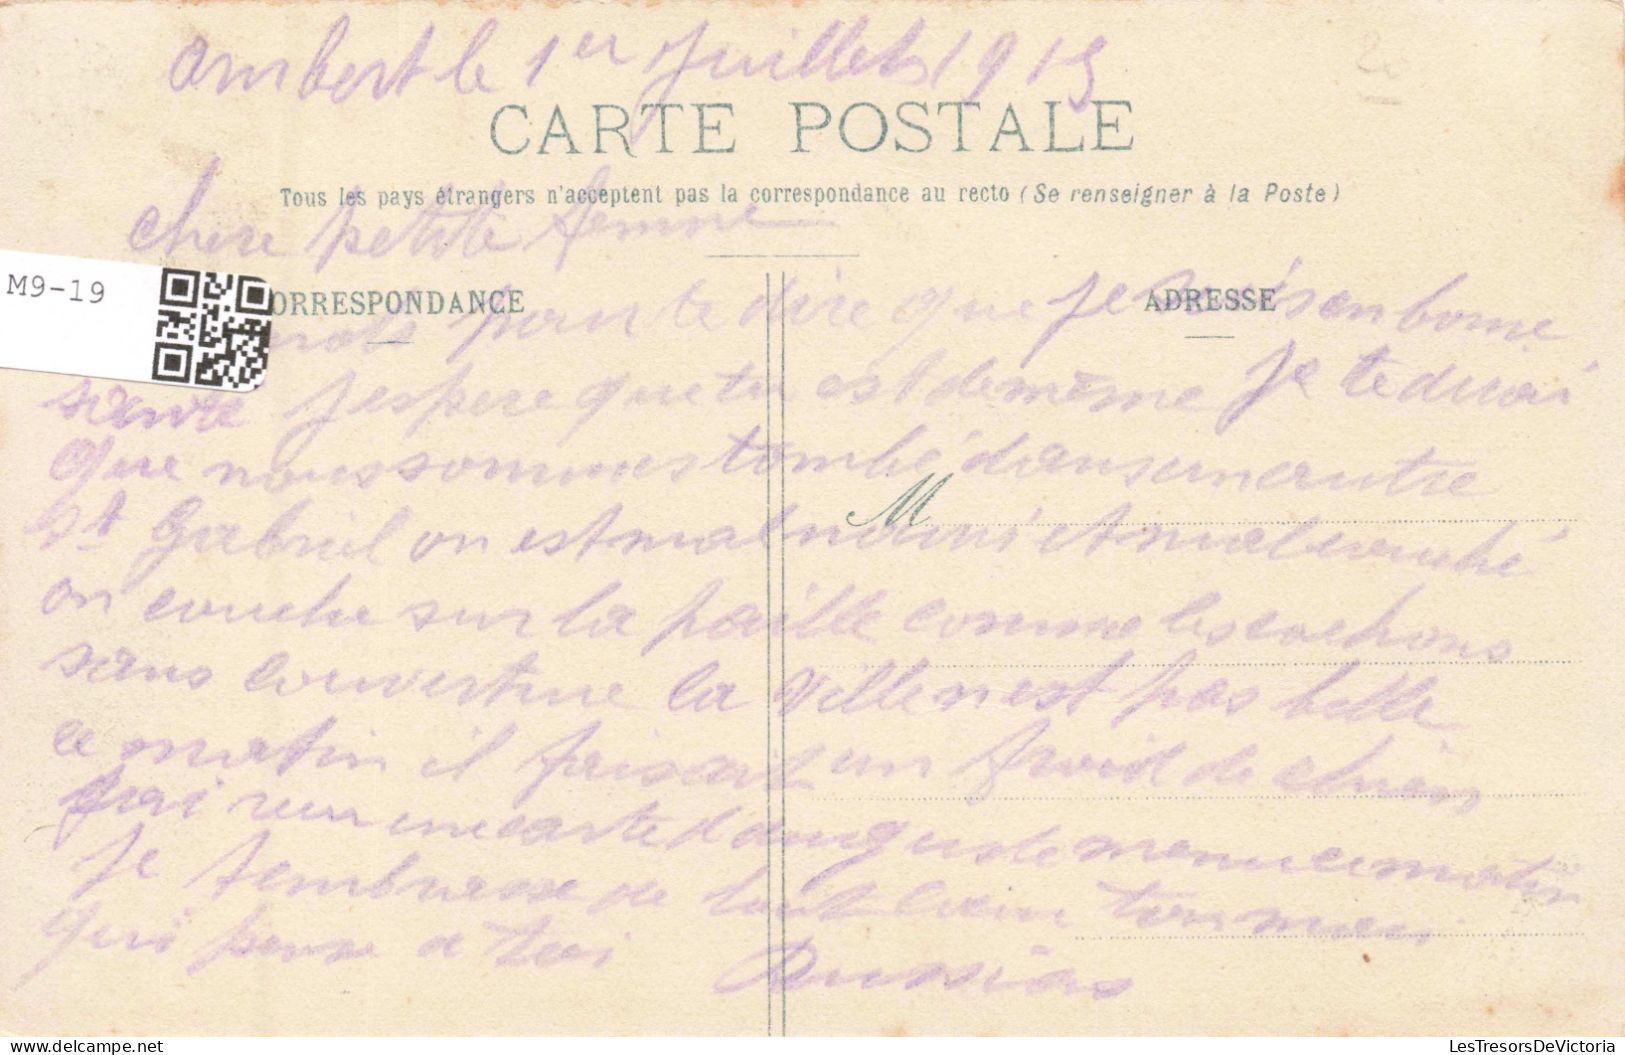 Ambert le 1er Juillet 1915
CARTE POSTALE
Tous les pays étrangers n'acceptent pas la correspondance au recto (Se renseigner à la Poste)
chere petite femme
M9-19
ORRESPONDANCE
ADRESSE
mots pour te dire que je suis en bonne
sante j espere que tu est de même je te dirai
que nous sommes tombé dans un autre
St Gabriel on est mal nouri et mal couché
M
on couche sur la paille comme les cochons
sans couverture la ville n est pas belle
ce matin il faisait un froid de chien
j ai reçu une carte d auguste ce matin
Je t embrasse de tout cœur ton mari
qui pense a toi
LesTresorsDeVictoria.com